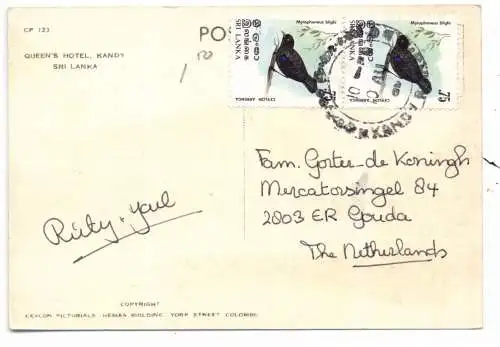 CP 123
QUEEN'S HOTEL, KANDY
SRI LANKA
ශ්‍රී ලංකා
SRI LANKA
Myiophoneus blighi
75
CEYLON ARRENGA
SRI LANKA
Myiophoneus blighi
75
CEYLON ARRENGA
KANDY
Fam. Gorter-de Koningh
Mercatorsingel 84
2803 ER Gouda
The Netherlands
Ruty + Yaul
COPYRIGHT
CEYLON PICTORIALS - HEMAS BUILDING, YORK STREET COLOMBO.